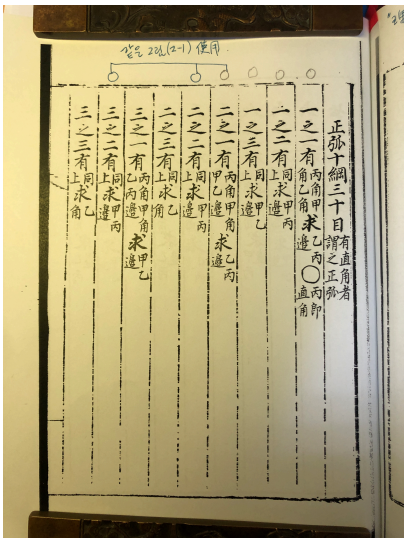 같은 그림(2-1) 使用.
正弧十綱三十目有直角者謂之正弧
一之一有丙角甲角乙角求乙丙邊〇丙即直角
一之二有同上求甲丙邊
一之三有同上求甲乙邊
二之一有丙角甲角甲乙邊求乙丙邊
二之二有同上求甲丙邊
二之三有同上求乙角
三之一有丙角甲角乙丙邊求甲乙邊
三之二有同上求甲丙邊
三之三有同上求乙角